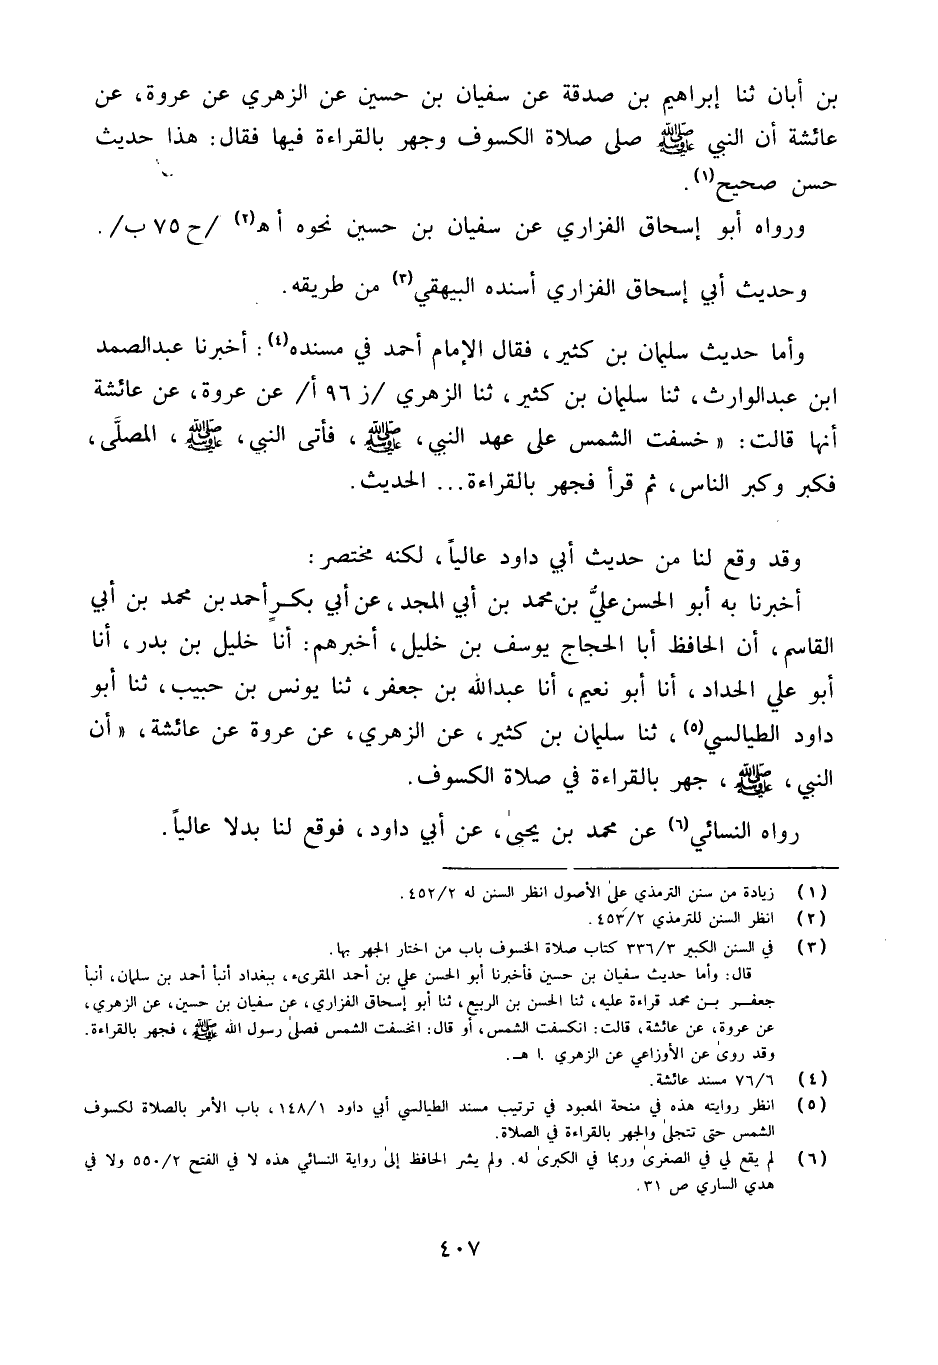 بن أبان ثنا إبراهيم بن صدقة عن سفيان بن حسين عن الزهري عن عروة، عن
عائشة أن النبي ﷺ صلى صلاة الكسوف وجهر بالقراءة فيها فقال: هذا حديث
حسن صحيح(١).
ورواه أبو إسحاق الفزاري عن سفيان بن حسين نحوه أ هـ(٢) /ح ٧٥ ب/.
وحديث أبي إسحاق الفزاري أسنده البيهقي(٣) من طريقه.
وأما حديث سليمان بن كثير، فقال الإمام أحمد في مسنده(٤): أخبرنا عبدالصمد
ابن عبدالوارث، ثنا سليمان بن كثير، ثنا الزهري /ز ٩٦ أ/ عن عروة، عن عائشة
أنها قالت: «خسفت الشمس على عهد النبي، ﷺ، فأتى النبي، ﷺ، المصلَّى،
فكبر وكبر الناس، ثم قرأ فجهر بالقراءة... الحديث.
وقد وقع لنا من حديث أبي داود عالياً، لكنه مختصر:
أخبرنا به أبو الحسن عليُّ بن محمد بن أبي المجد، عن أبي بكرٍ أحمد بن محمد بن أبي
القاسم، أن الحافظ أبا الحجاج يوسف بن خليل، أخبرهم: أنا خليل بن بدر، أنا
أبو علي الحداد، أنا أبو نعيم، أنا عبدالله بن جعفر، ثنا يونس بن حبيب، ثنا أبو
داود الطيالسي(٥)، ثنا سليمان بن كثير، عن الزهري، عن عروة عن عائشة، «أن
النبي، ﷺ، جهر بالقراءة في صلاة الكسوف.
رواه النسائي(٦) عن محمد بن يحيىٰ، عن أبي داود، فوقع لنا بدلا عالياً.
(١) زيادة من سنن الترمذي علىٰ الأصول انظر السنن له ٤٥٢/٢.
(٢) انظر السنن للترمذي ٤٥٣/٢.
(٣) في السنن الكبير ٣٣٦/٣ كتاب صلاة الخسوف باب من اختار الجهر بها.
قال: وأما حديث سفيان بن حسين فأخبرنا أبو الحسن علي بن أحمد المقرىء، ببغداد أنبأ أحمد بن سلمان، أنبأ
جعفر بن محمد قراءة عليه، ثنا الحسن بن الربيع، ثنا أبو إسحاق الفزاري، عن سفيان بن حسين، عن الزهري،
عن عروة، عن عائشة، قالت: انكسفت الشمس، أو قال: انخسفت الشمس فصلىٰ رسول الله ﷺ، فجهر بالقراءة.
وقد روىٰ عن الأوزاعي عن الزهري .ا هـ.
(٤) ٧٦/٦ مسند عائشة.
(٥) انظر روايته هذه في منحة المعبود في ترتيب مسند الطيالسي أبي داود ١٤٨/١، باب الأمر بالصلاة لكسوف
الشمس حتى تتجلىٰ والجهر بالقراءة في الصلاة.
(٦) لم يقع لي في الصغرىٰ وربما في الكبرىٰ له. ولم يشر الحافظ إلىٰ رواية النسائي هذه لا في الفتح ٥٥٠/٢ ولا في
هدي الساري ص ٣١.
٤٠٧